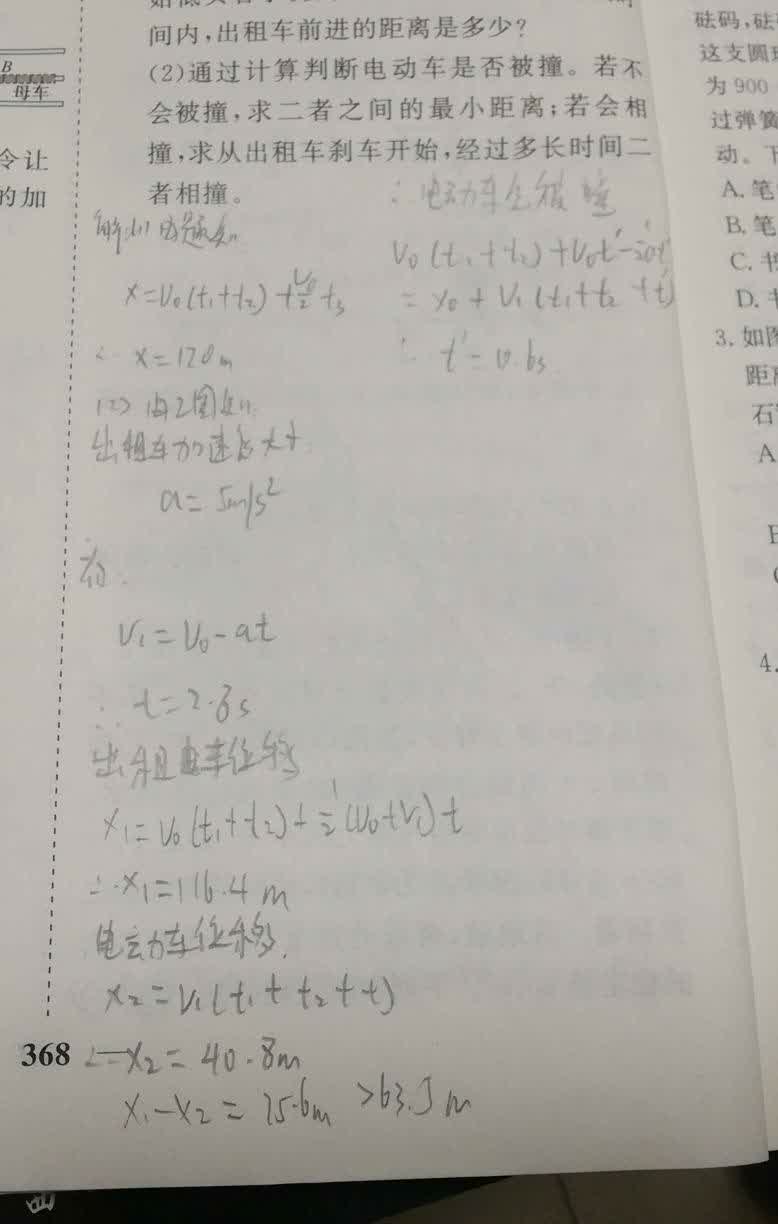 B
母车
令让
的加
间内,出租车前进的距离是多少?
(2)通过计算判断电动车是否被撞。若不
会被撞,求二者之间的最小距离;若会相
撞,求从出租车刹车开始,经过多长时间二
者相撞。
解:(1)由题知
x=v₀(t₁+t₂)+v₀/2 t₃
∴ x=120m
(2)由乙图知
出租车加速度大小
a=5m/s²
有
v₁=v₀-at
∴ t=2.8s
出租车位移
x₁=v₀(t₁+t₂)+½(v₀+v₁)t
∴x₁=116.4m
电动车位移
x₂=v₁(t₁+t₂+t)
∴x₂=40.8m
x₁-x₂=75.6m>63.5m
∴电动车会被撞
=x₀+v₁(t₁+t₂+t')
∴ t'=0.6s
368
砝码,砝
这支圆
为900
过弹簧
动。下
A.笔
B.笔
C.书
D.书
3.如图
距离
石
A
4.